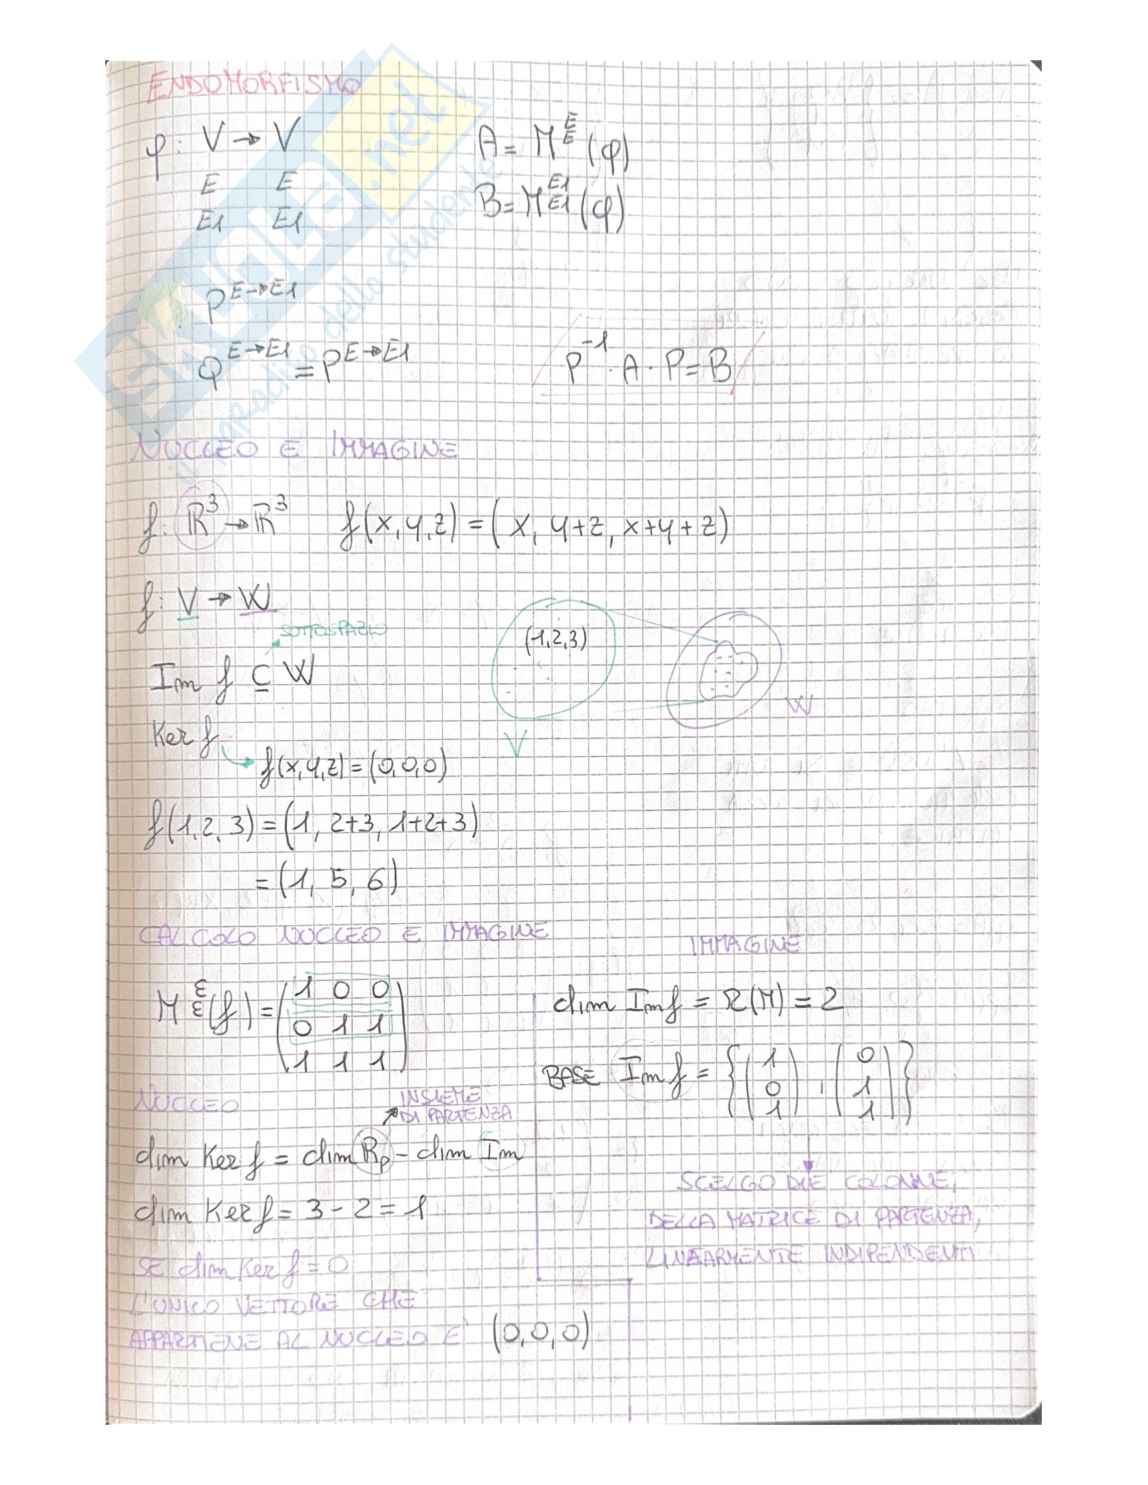 ENDOMORFISMO
φ: V → V
E E
E1 E1
A = M^E_E (φ)
B = M^E1_E1 (φ)
P^E→E1
Q^E→E1 = P^E→E1
P^-1 · A · P = B
NUCLEO E IMMAGINE
f: R^3 → R^3 f(x,y,z) = (x, y+z, x+y+z)
f: V → W
SOTTOSPAZIO
Im f ⊆ W
(1,2,3)
V
W
Ker f
f(x,y,z) = (0,0,0)
f(1,2,3) = (1, 2+3, 1+2+3)
= (1, 5, 6)
CALCOLO NUCLEO E IMMAGINE
M^ε_ε(f) = (1 0 0
0 1 1
1 1 1)
NUCLEO
INSIEME
DI PARTENZA
dim Ker f = dim Rp - dim Im
dim Ker f = 3 - 2 = 1
SE dim Ker f = 0
L'UNICO VETTORE CHE
APPARTIENE AL NUCLEO E' (0,0,0)
IMMAGINE
dim Im f = R(M) = 2
BASE Im f = {(1 0 1), (0 1 1)}
SCELGO DUE COLONNE,
DELLA MATRICE DI PARTENZA,
LINEARMENTE INDIPENDENTI
skuola.net